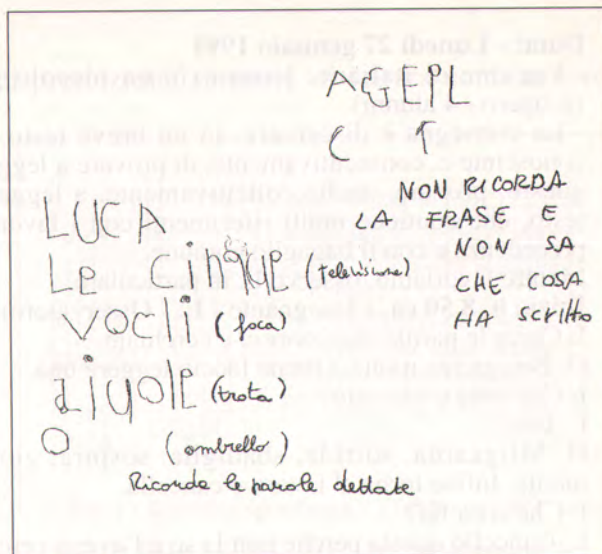 AGEPL
( 1
NON RICORDA
LA FRASE E
NON SA
CHE COSA
HA scritto
LUCA
LE
(televisione)
VOCLI (foca)
(trota)
O (ombrello)
Ricorda le parole dettate